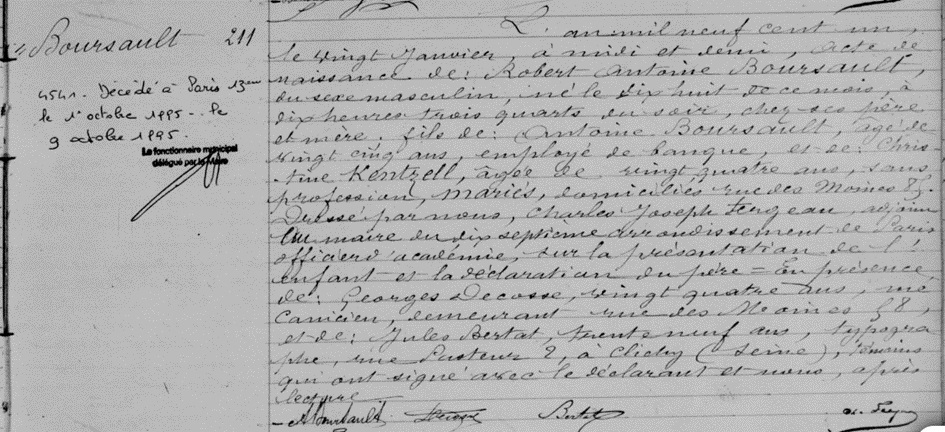 Boursault 211
4541. Décédé à Paris 13em
le 1er octobre 1995. le
9 octobre 1995.
Le fonctionnaire municipal
délégué par le Maire
L'an mil neuf cent un,
le vingt Janvier à midi et demi, acte de
naissance de: Robert Antoine Boursault,
du sexe masculin, né le dix huit de ce mois, à
dix heures trois quarts du soir, chez ses père
et mère, fils de: Antoine Boursault, âgé de
vingt cinq ans, employé de banque, et de Chris-
tine Kentzell, âgée de vingt quatre ans, sans
profession, mariés, domiciliés rue des Moines 85.
Dressé par nous, Charles Joseph adjoint
au maire du dix septième arrondissement de Paris
officier d'académie, sur la présentation de l'
enfant et la déclaration du père = En présence
de: Georges Decosse, vingt quatre ans, mé
canicien, demeurant rue des Moines 58,
et de: Jules Bertat, trente neuf ans, typogra
phe, rue Pasteur 2, à Clichy (Seine), témoins
qui ont signé avec le déclarant et nous, après
lecture
ABoursault Bertat